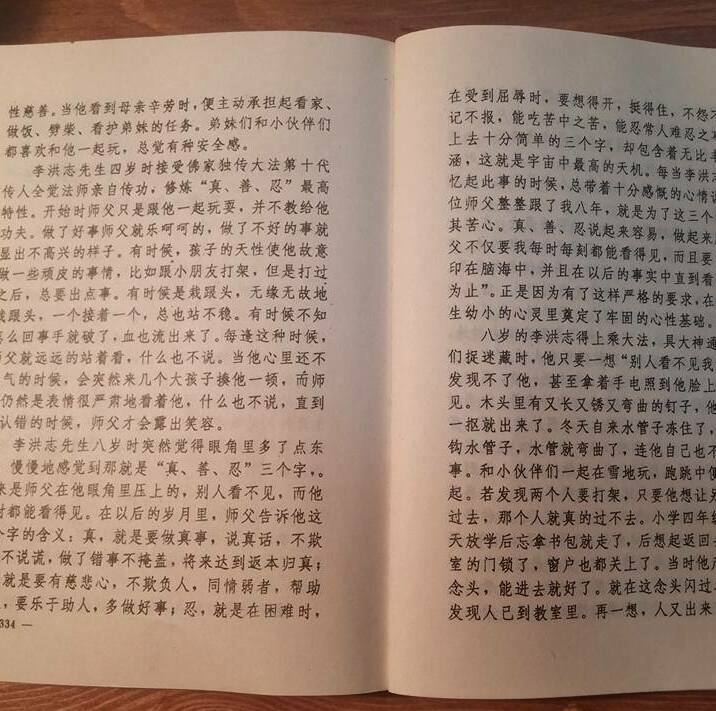 性慈善。当他看到母亲辛劳时，便主动承担起看家、
做饭、劈柴、看护弟妹的任务。弟妹们和小伙伴们
都喜欢和他一起玩，总觉有种安全感。
李洪志先生四岁时接受佛家独传大法第十代
传人全觉法师亲自传功，修炼“真、善、忍”最高
特性。开始时师父只是跟他一起玩耍，并不教给他
功夫。做了好事师父就乐呵呵的，做了不好的事就
显出不高兴的样子。有时候，孩子的天性使他故意
做一些顽皮的事情，比如跟小朋友打架，但是打过
之后，总要出点事。有时候是栽跟头，无缘无故地
栽跟头，一个接着一个，总也站不稳。有时候不知
怎么回事手就破了，血也流出来了。每逢这种时候，
师父就远远的站着看，什么也不说。当他心里还不
气的时候，会突然来几个大孩子揍他一顿，而师
仍然是表情很严肃地看着他，什么也不说，直到
认错的时候，师父才会露出笑容。
李洪志先生八岁时突然觉得眼角里多了点东
慢慢地感觉到那就是“真、善、忍”三个字，。
来是师父在他眼角里压上的，别人看不见，而他
时都能看得见。在以后的岁月里，师父告诉他这
个字的含义：真，就是要做真事，说真话，不欺
不说谎，做了错事不掩盖，将来达到返本归真；
就是要有慈悲心，不欺负人，同情弱者，帮助
，要乐于助人，多做好事；忍，就是在困难时，
334 —
在受到屈辱时，要想得开，挺得住，不怨不
记不报，能吃苦中之苦，能忍常人难忍之
上去十分简单的三个字，却包含着无比
涵，这就是宇宙中最高的天机。每当李洪志
忆起此事的时候，总带着十分感慨的心情
位师父整整跟了我八年，就是为了这三个
其苦心。真、善、忍说起来容易，做起来
父不仅要我每时每刻都能看得见，而且要
印在脑海中，并且在以后的事实中直到看
为止”。正是因为有了这样严格的要求，在
生幼小的心灵里奠定了牢固的心性基础。
八岁的李洪志得上乘大法，具大神通
们捉迷藏时，他只要一想“别人看不见我
发现不了他，甚至拿着手电照到他脸上
见。木头里有又长又锈又弯曲的钉子，他
一抠就出来了。冬天自来水管子冻住了，
钩水管子，水管就弯曲了，连他自己也不
事。和小伙伴们一起在雪地玩，跑跳中便
起。若发现两个人要打架，只要他想让别
过去，那个人就真的过不去。小学四年级
天放学后忘拿书包就走了，后想起返回
室的门锁了，窗户也都关上了。当时他
念头，能进去就好了。就在这念头闪过
发现人已到教室里。再一想，人又出来